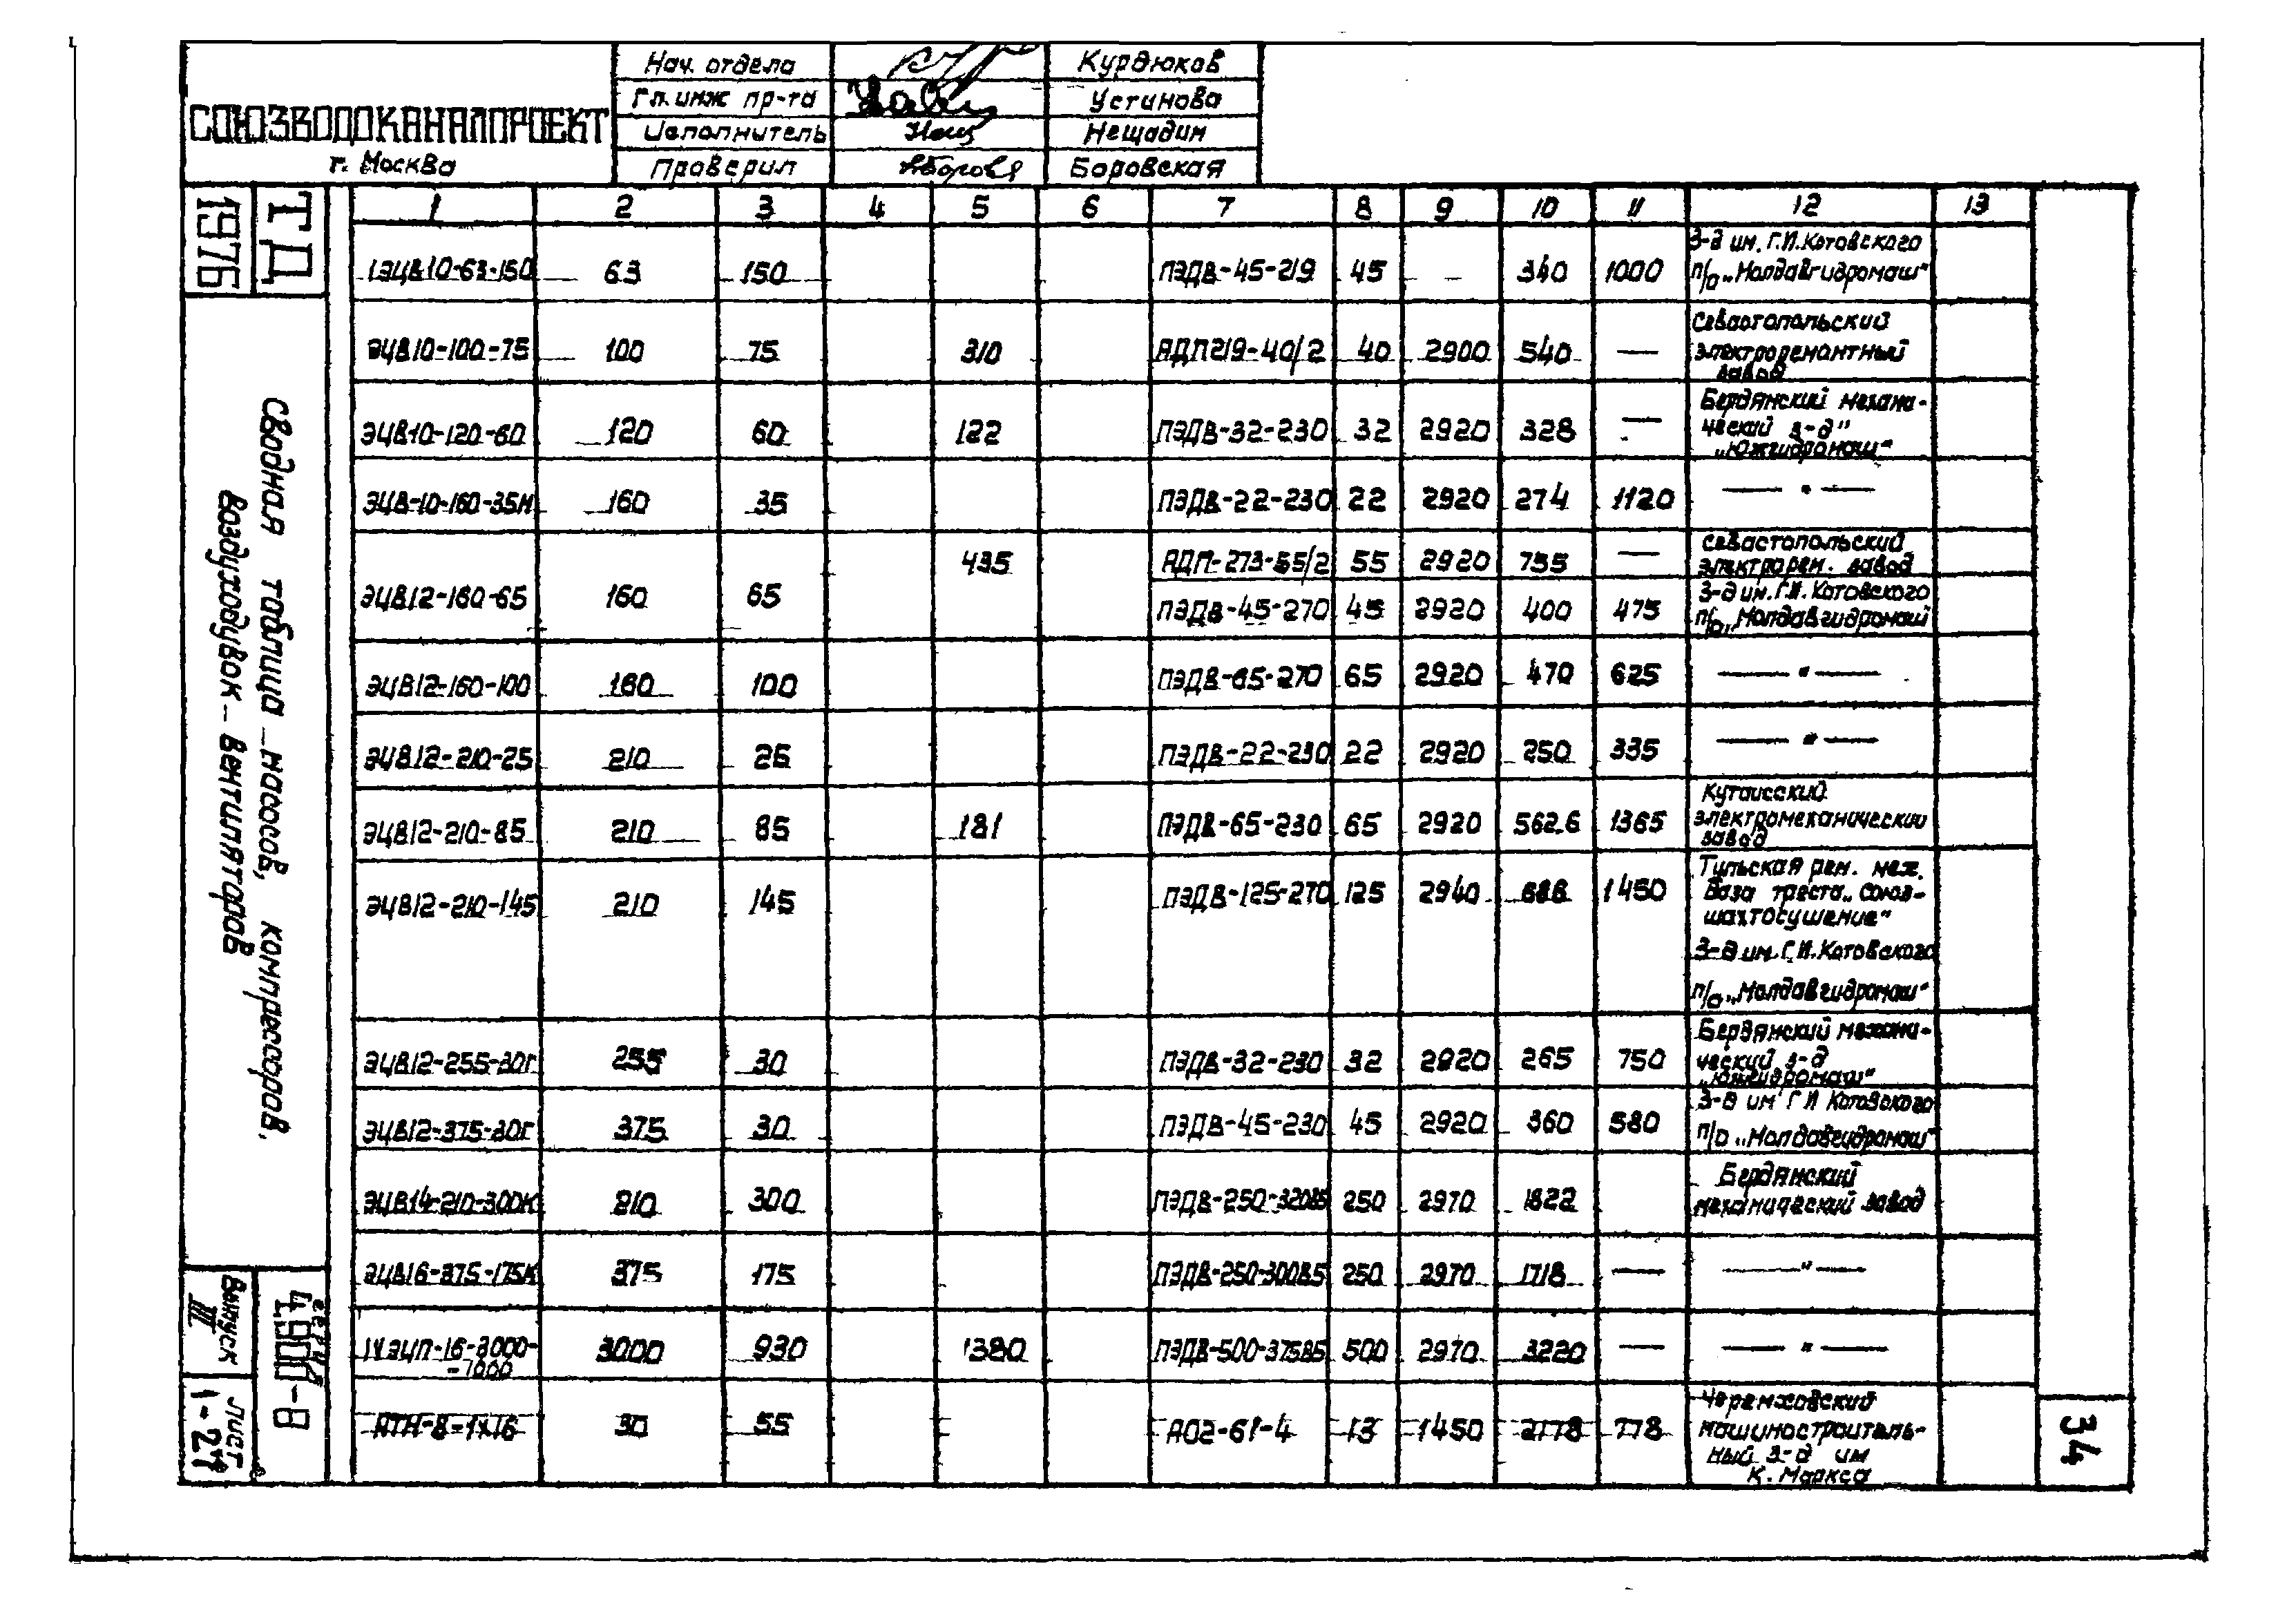 Нач. отдела Курдюков
Гл. инж пр-та Устинова
СОЮЗВОДОКАНАЛПРОЕКТ
Исполнитель Нещадим
г. Москва
Проверил Боровская
ТД
1976
Сводная таблица насосов, компрессоров,
воздуходувок – вентиляторов
Серия
4.900-8
Выпуск
III
Лист
34
1 2 3 4 5 6 7 8 9 10 11 12 13
1ЭЦВ10-63-150 63 150 ПЭДВ-45-219 45 - 340 1000 З-д им. Г.И. Котовского
п/о „Молдавгидромаш"
ЭЦВ10-100-75 100 75 310 АДП219-40/2 40 2900 540 — Севастопольский
электроремонтный
завод
ЭЦВ10-120-60 120 60 122 ПЭДВ-32-230 32 2920 328 — Бердянский механи-
ческий з-д"
„Южгидромаш"
ЭЦВ-10-160-35М 160 35 ПЭДВ-22-230 22 2920 274 1120 — " —
ЭЦВ12-160-65 160 65 435 АДП-273-55/2 55 2920 735 — Севастопольский
электрорем. завод
ПЭДВ-45-270 45 2920 400 475 З-д им. Г.И. Котовского
п/о „Молдавгидромаш
ЭЦВ12-160-100 160 100 ПЭДВ-65-270 65 2920 470 625 — " —
ЭЦВ12-210-25 210 25 ПЭДВ-22-230 22 2920 250 335 — " —
ЭЦВ12-210-85 210 85 181 ПЭДВ-65-230 65 2920 562.6 1365 Кутаисский
электромеханический
завод
ЭЦВ12-210-145 210 145 ПЭДВ-125-270 125 2940 686 1450 Тульская рем. мех.
База треста „Союз-
шахтосушение"
З-д им. Г.И. Котовского
п/о „Молдавгидромаш"
ЭЦВ12-255-30г 255 30 ПЭДВ-32-230 32 2920 265 750 Бердянский механи-
ческий з-д
„Южгидромаш"
ЭЦВ12-375-30г 375 30 ПЭДВ-45-230 45 2920 360 580 З-д им Г И Котовского
п/о „Молдавгидромаш"
ЭЦВ14-210-300К 210 300 ПЭДВ-250-320В5 250 2970 1822 Бердянский
механический завод
ЭЦВ16-375-175К 375 175 ПЭДВ-250-300В5 250 2970 1718 — — " —
ЭЦП-16-3000- 3000 930 1380 ПЭДВ-500-375В5 500 2970 3220 — — " —
-1000
АТН-8-1х16 30 55 АО2-61-4 13 1450 778 Черемховский
машиностроитель-
ный з-д им
К. Маркса